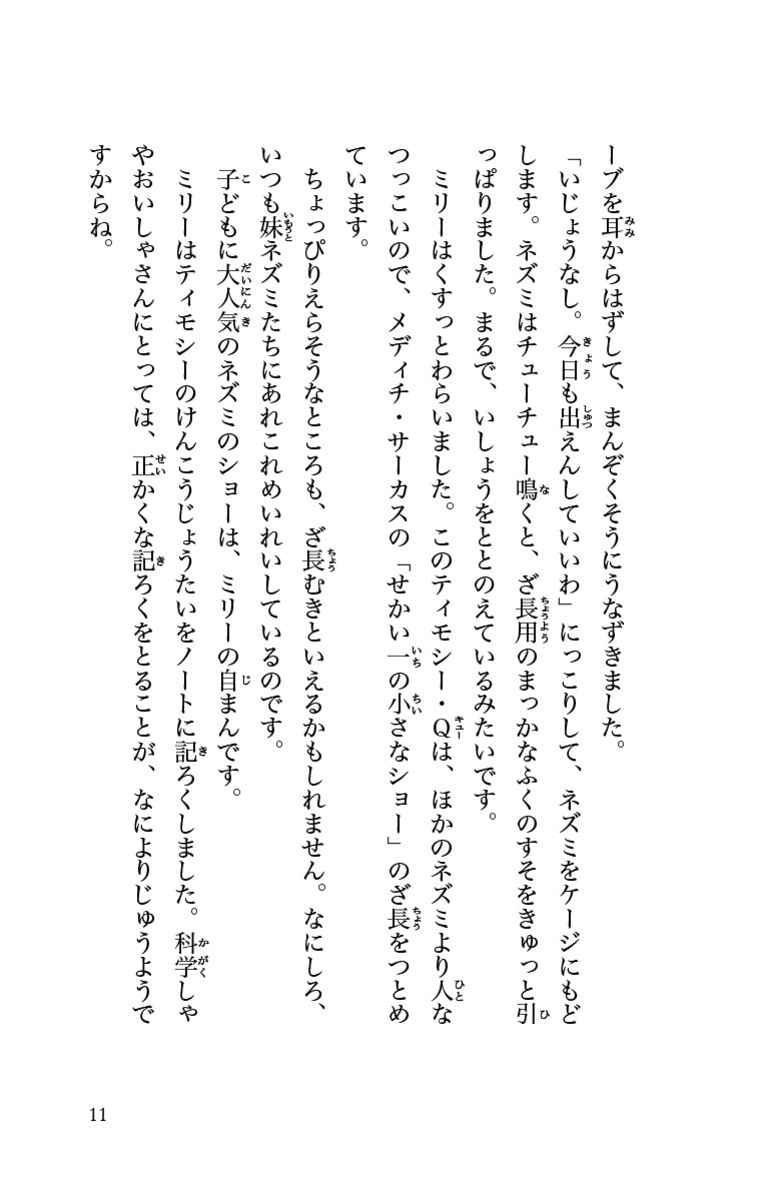 ーブを耳からはずして、まんぞくそうにうなずきました。
「いじょうなし。今日も出えんしていいわ」にっこりして、ネズミをケージにもど
します。ネズミはチューチュー鳴くと、ざ長用のまっかなふくのすそをきゅっと引
っぱりました。まるで、いしょうをととのえているみたいです。
ミリーはくすっとわらいました。このティモシー・Qは、ほかのネズミより人な
つっこいので、メディチ・サーカスの「せかい一の小さなショー」のざ長をつとめ
ています。
ちょっぴりえらそうなところも、ざ長むきといえるかもしれません。なにしろ、
いつも妹ネズミたちにあれこれめいれいしているのです。
子どもに大人気のネズミのショーは、ミリーの自まんです。
ミリーはティモシーのけんこうじょうたいをノートに記ろくしました。科学しゃ
やおいしゃさんにとっては、正かくな記ろくをとることが、なによりじゅうようで
すからね。
11